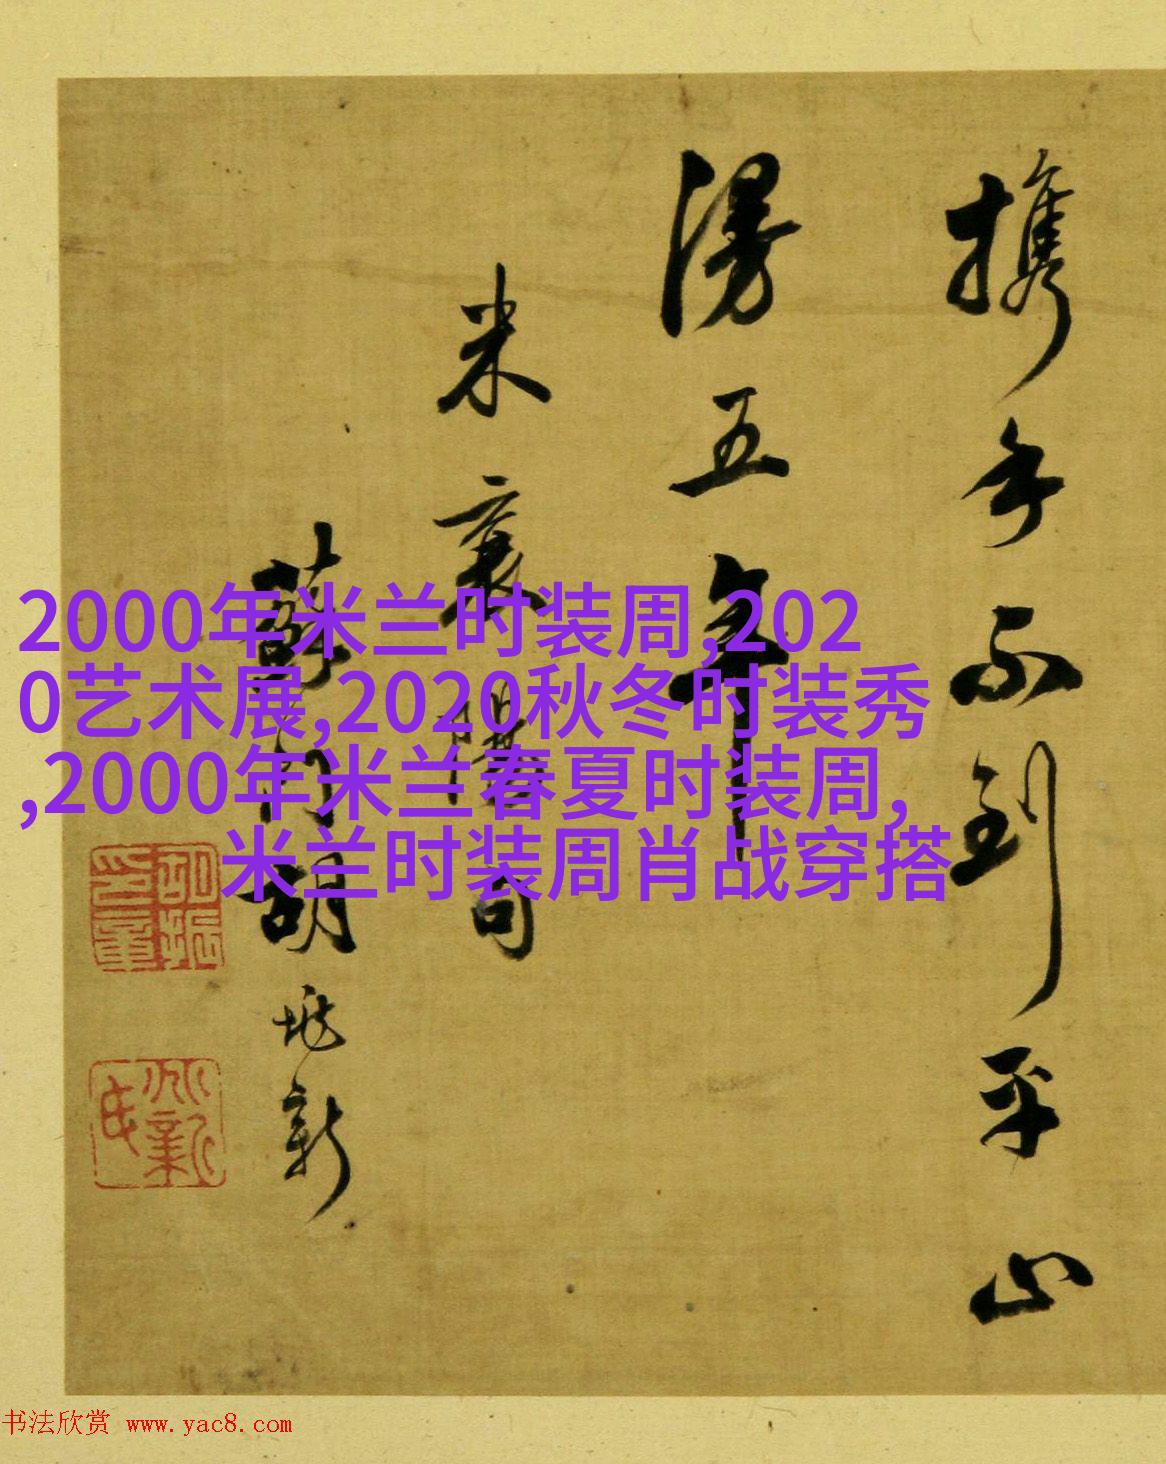 携手不到平山
漫五年
米襄陽句
2000年米兰时装周,202
0艺术展,2020秋冬时装秀
,2000年米兰春夏时装周,
米兰时装周肖战穿搭
书法欣赏 www.yac8.com